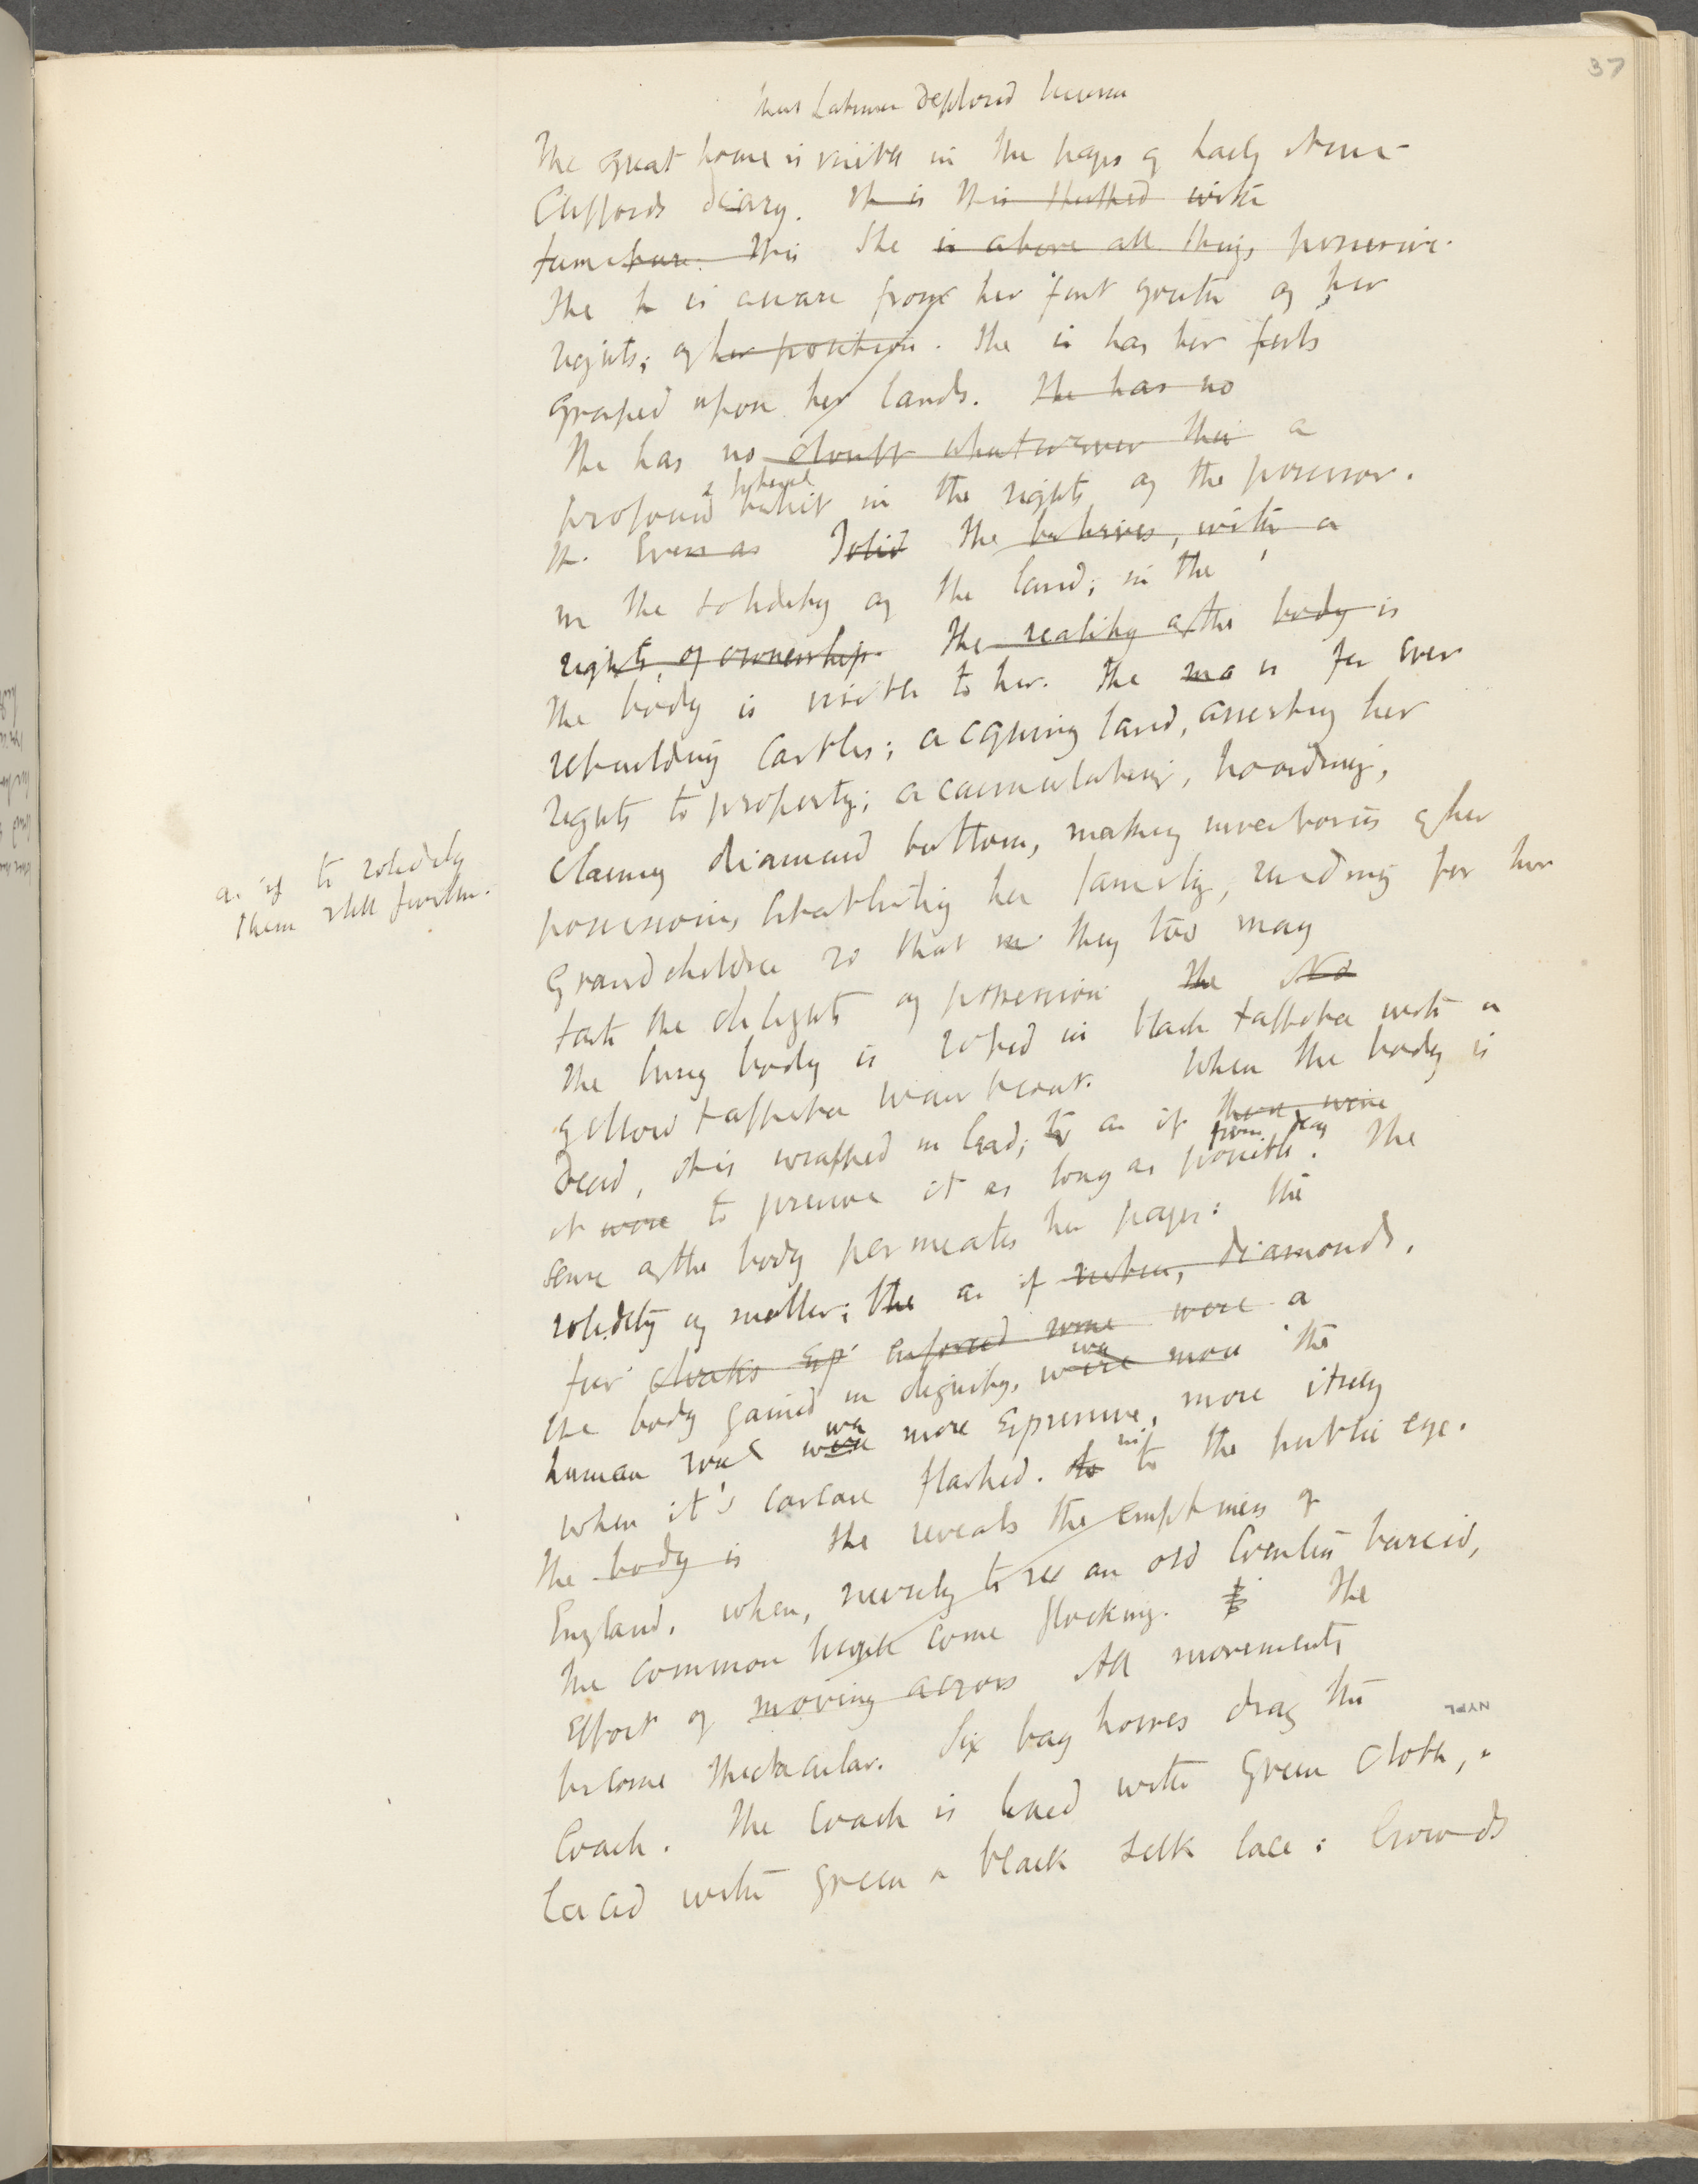 37
that Latimer deplored
The great house is visible in the pages of Lady Anne
Cliffords diary. It is this stuffed with
furniture. This She is above all things possessive.
She h is aware from her first youth of her
rights; of her position. She is has her feet
grasped upon her lands. She has no
She has no doubt whatsoever this a
profound & physical belief in the rights of the possessor.
It. Even as Solid She believes, with a
in the solidity of the land; in the
rights of ownership. The reality of the body is
The body is visible to her. She is for ever
rebuilding Castles; acquiring land, asserting her
rights to property; accumulating, hoarding,
claiming diamond buttons, making inventories of her
possessions, establishing her family, reading for her
grandchildren so that they too may
taste the delights of possession The No
The living body is robed in black taffeta with a
yellow taffeta waistcoat. When the body is
dead, it is wrapped in lead; to as if there were
it were to preserve it as long as possible from decay. The
sense of the body permeates her pages: the
solidity of matter; the as if rubies, diamonds,
fur cloaks enforced some were a
the body gained in dignity, were was more the
human soul were was more expressive, more itself
when it's carcase flashed. to in to the public eye.
The body is She reveals the emptiness of
England, when, merely to see an old Countess buried,
the common people come flocking. The
Effort of moving across All movements
become spectacular. Six bay horses drag the
Coach. The Coach is lined with green cloth, &
laced with green & black silk lace: Crowds
as if to solidify
them still further.
NYPL